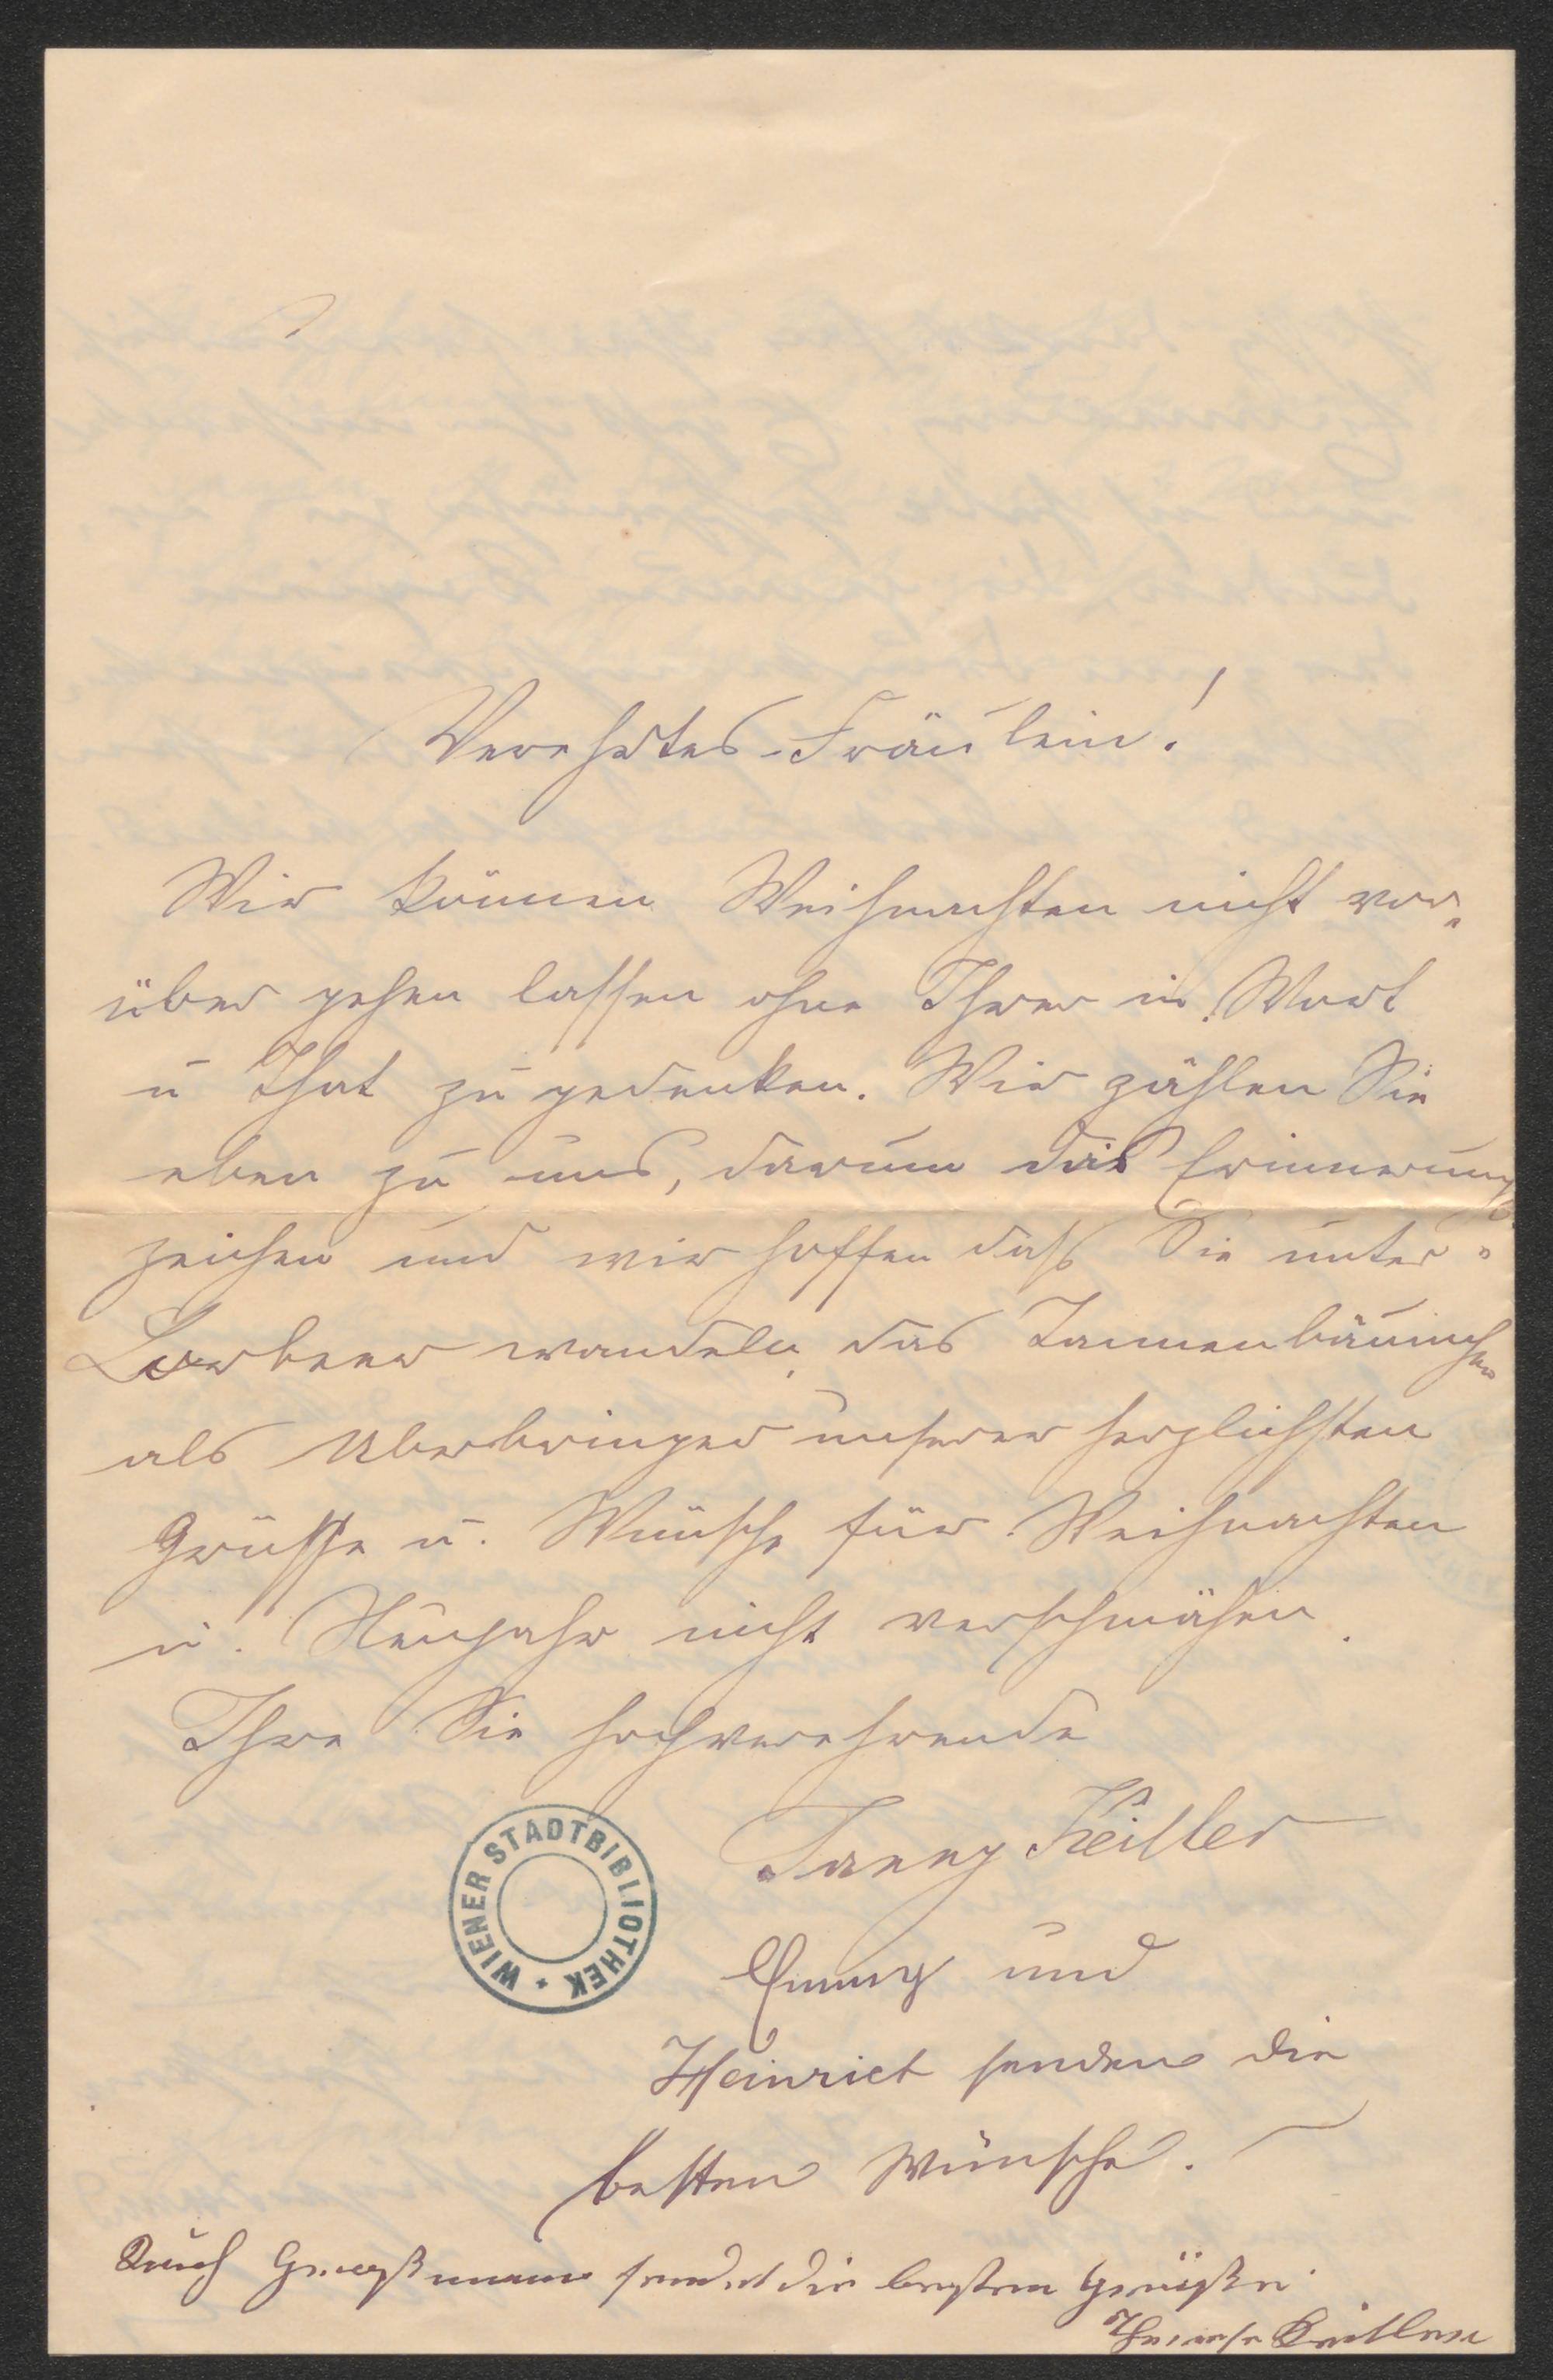 Verehrtes Fräulein!
Wir können Weihnachten nicht vor-
über gehen lassen ohne Ihrer in Wort
u That zu gedenken. Wir zählen Sie
eben zu uns, darum das Erinnerungs-
zeichen und wir hoffen daß Sie unter
Lorbeer wandeln das Tannenbäumchen
als Überbringer unserer herzlichsten
Grüsse u. Wünsche für Weihnachten
u. Neujahr nicht verschmähen.
Ihre Sie hochverehrende
Fanny Keitler
WIENER STADTBIBLIOTHEK
Emmy und
Heinrich senden die
besten Wünsche.
Auch Großmama sendet die besten Grüße
Therese